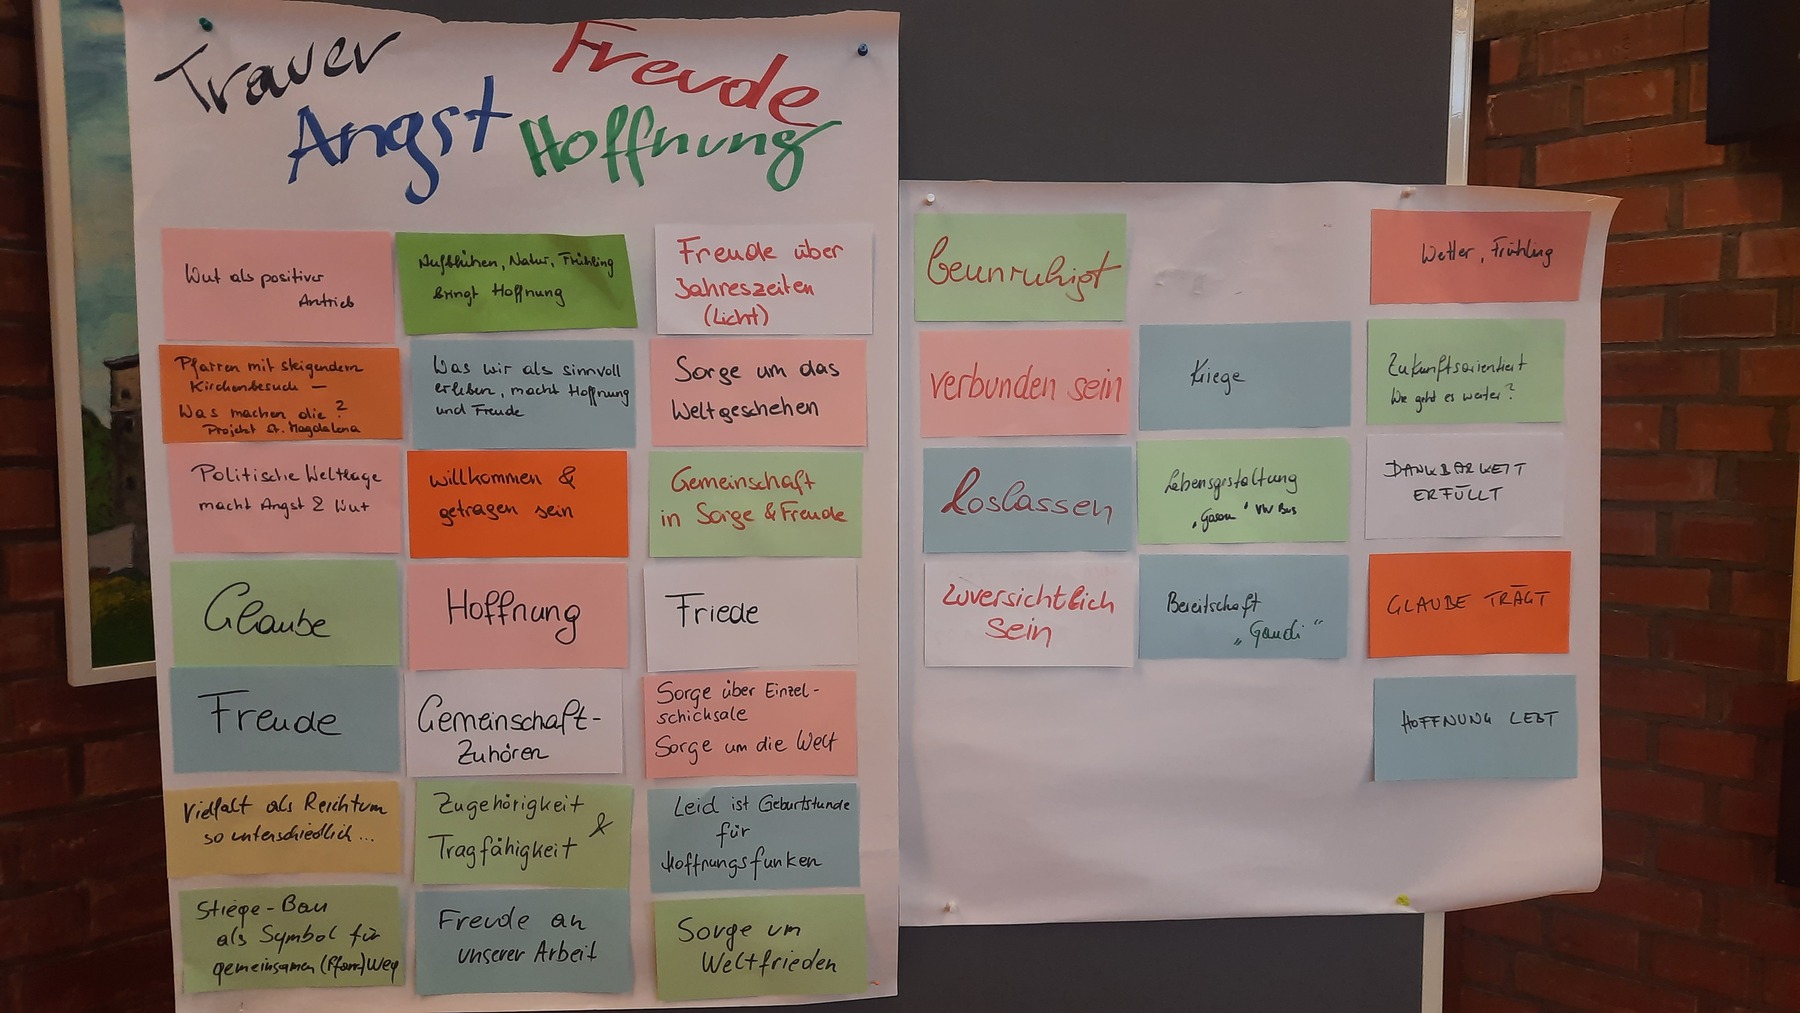 Trauer
Freude
Angst
Hoffnung
Wut als positiver
Antrieb
Aufblühen, Natur, Frühling
bringt Hoffnung
Freude über
Jahreszeiten
(Licht)
Pfarren mit steigendem
Kirchenbesuch –
Was machen die?
Projekt St. Magdalena
Was wir als sinnvoll
erleben, macht Hoffnung
und Freude
Sorge um das
Weltgeschehen
Politische Weltlage
macht Angst & Wut
willkommen &
getragen sein
Gemeinschaft
in Sorge & Freude
Glaube
Hoffnung
Friede
Freude
Gemeinschaft-
Zuhören
Sorge über Einzel-
schicksale
Sorge um die Welt
Vielfalt als Reichtum
so unterschiedlich...
Zugehörigkeit
&
Tragfähigkeit
Leid ist Geburtstunde
für
Hoffnungsfunken
Stiege-Bau
als Symbol für
gemeinsamen (Pfarr)weg
Freude an
unserer Arbeit
Sorge um
Weltfrieden
beunruhigt
Wetter, Frühling
verbunden sein
Kriege
Zukunftsorientiert
Wie geht es weiter?
Loslassen
Lebensgestaltung
DANKBARKEIT
ERFÜLLT
Zuversichtlich
sein
Bereitschaft
„Gaudi“
GLAUBE TRÄGT
HOFFNUNG LEBT